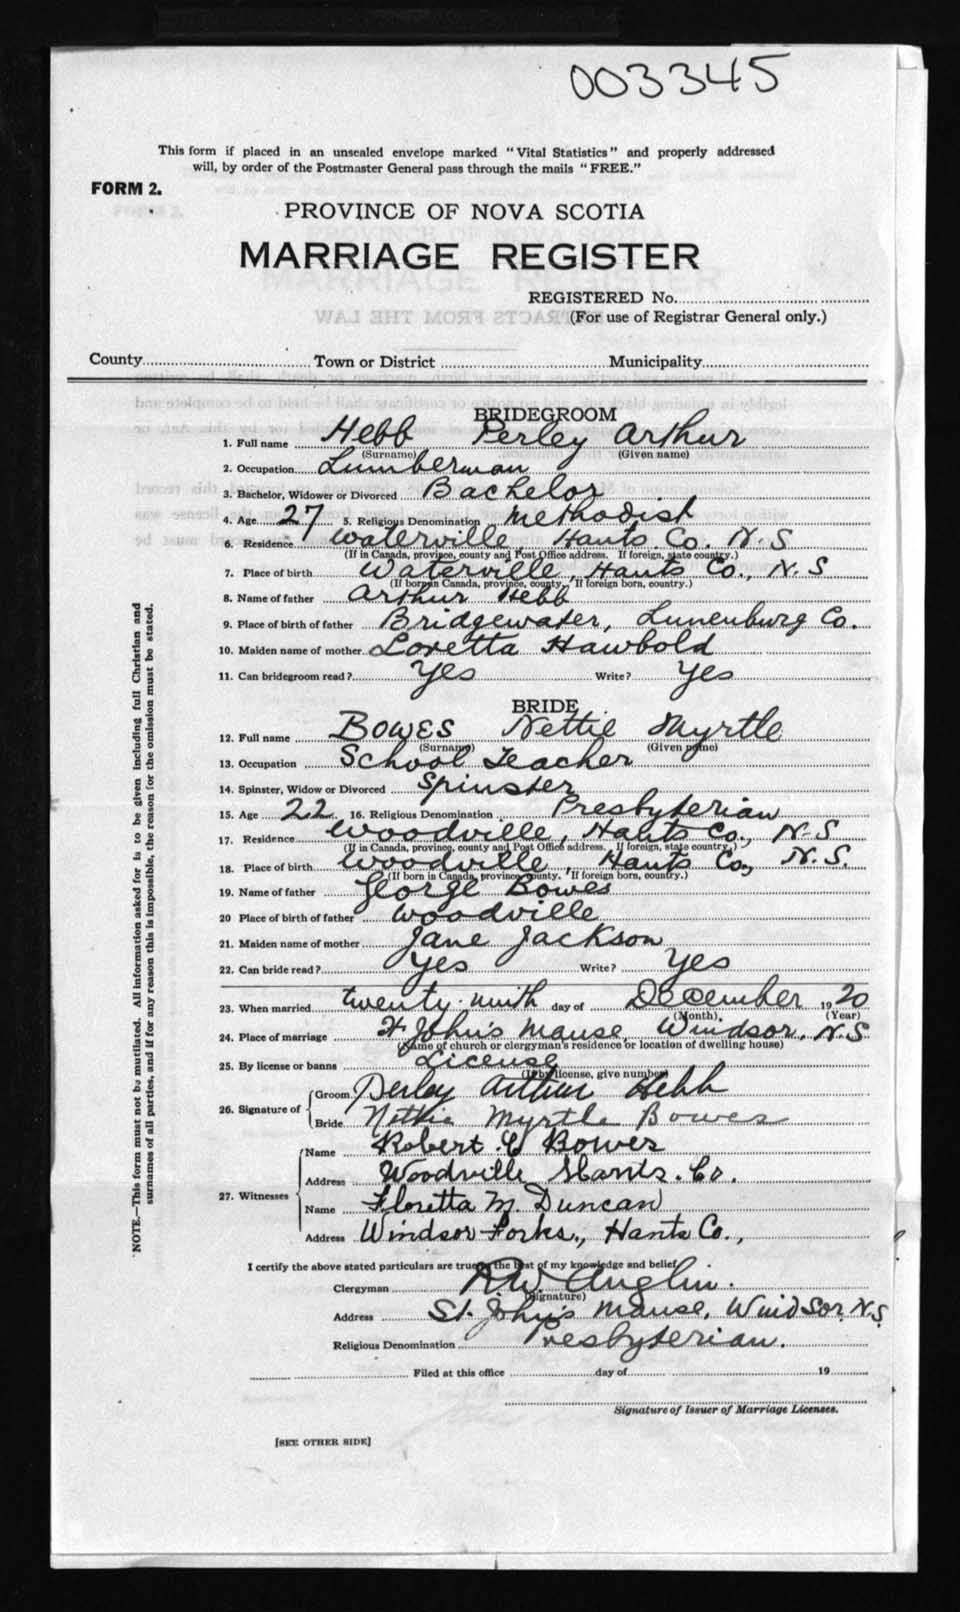 003345
This form if placed in an unsealed envelope marked "Vital Statistics" and properly addressed
will, by order of the Postmaster General pass through the mails "FREE."
FORM 2.
PROVINCE OF NOVA SCOTIA
MARRIAGE REGISTER
REGISTERED No.
(For use of Registrar General only.)
County Town or District Municipality
BRIDEGROOM
1. Full name Hebb Perley Arthur
(Surname) (Given name)
2. Occupation Lumberman
3. Bachelor, Widower or Divorced Bachelor
4. Age 27 5. Religious Denomination Methodist
6. Residence Waterville, Hants Co. N.S
(If in Canada, province, county and Post Office address. If foreign, state country.)
7. Place of birth Waterville, Hants Co., N.S
(If born in Canada, province, county. If foreign born, country.)
8. Name of father Arthur Hebb
9. Place of birth of father Bridgewater, Lunenburg Co.
10. Maiden name of mother Loretta Hawbold
11. Can bridegroom read? Yes Write? Yes
BRIDE
12. Full name Bowes Nettie Myrtle
(Surname) (Given name)
13. Occupation School Teacher
14. Spinster, Widow or Divorced Spinster
15. Age 22 16. Religious Denomination Presbyterian
17. Residence Woodville, Hants Co., N.S
(If in Canada, province, county and Post Office address. If foreign, state country.)
18. Place of birth Woodville, Hants Co., N.S.
(If born in Canada, province, county. If foreign born, country.)
19. Name of father George Bowes
20 Place of birth of father Woodville
21. Maiden name of mother Jane Jackson
22. Can bride read? Yes Write? Yes
23. When married twenty-ninth day of December 1920
(Month). (Year)
24. Place of marriage St John's Manse, Windsor, N.S
(Name of church or clergyman's residence or location of dwelling house)
25. By license or banns License
(If by license, give number)
26. Signature of
Groom Perley Arthur Hebb
Bride Nettie Myrtle Bowes
27. Witnesses
Name Robert Bowes
Address Woodville Hants. Co.
Name Floretta M. Duncan
Address Windsor Forks, Hants Co.,
I certify the above stated particulars are true to the best of my knowledge and belief
Clergyman R.W. Anglin.
(Signature)
Address St. John's Manse, Windsor, N.S.
Religious Denomination Presbyterian.
Filed at this office day of 19
Signature of Issuer of Marriage Licenses.
[SEE OTHER SIDE]
NOTE.—This form must not be mutilated. All information asked for is to be given including full Christian and
surnames of all parties, and if for any reason this is impossible, the reason for the omission must be stated.